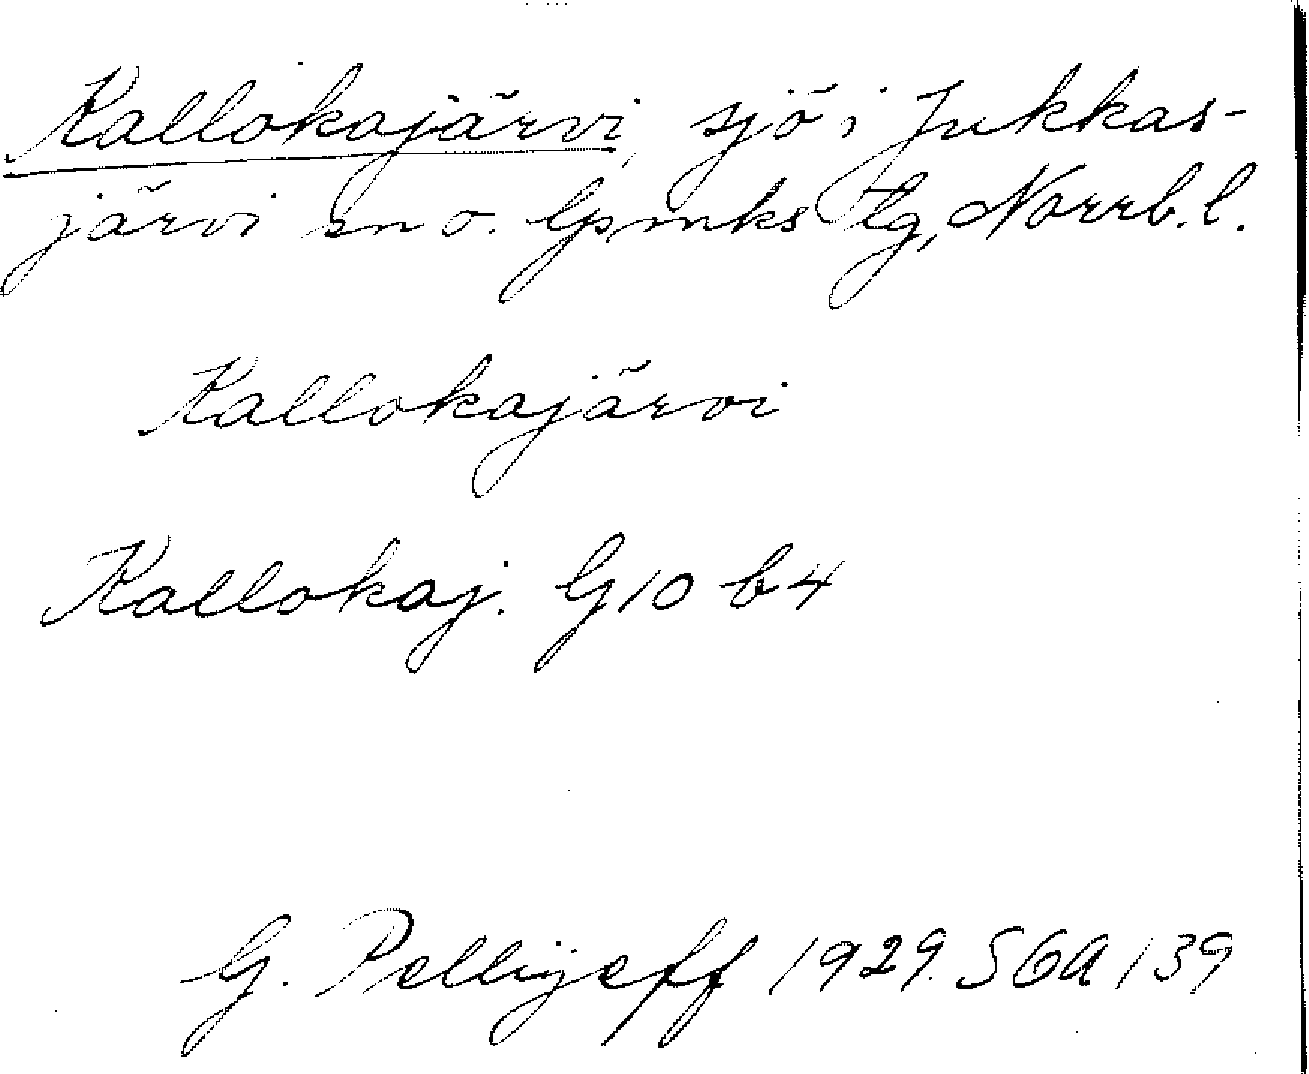 Kallokajärvi, sjö i Jukkas-
järvi sn o. lpmks tlg, Norrb. l.
Kallokajärvi
Kallokaj. G10 b4
G. Pellijeff 1929. SGA 139